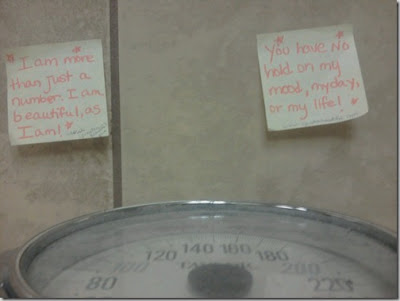 "I am more
than just a
number. I am
beautiful, as
I am!"
"You have No
hold on my
mood, my day,
or my life!"
80 100 120 140 160 180 200 220